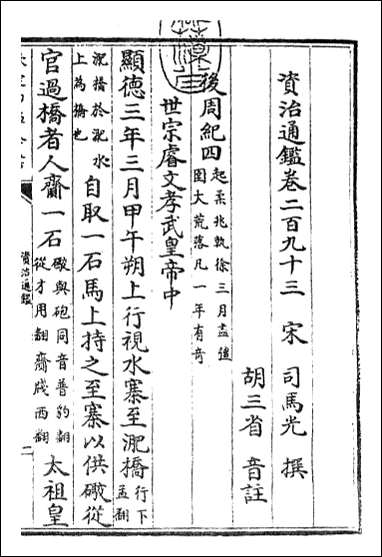 資治通鑑卷二百九十三 宋 司馬光 撰
胡三省 音註
後周紀四 起柔兆執徐三月盡彊圉大荒落凡一年有奇
世宗睿文孝武皇帝中
顯德三年三月甲午朔上行視水寨至淝橋 行下孟翻
淝橋於淝水上為橋也 自取一石馬上持之至寨以供礮從
官過橋者人齎一石 礮與砲同音普豹翻從才用翻齎牋西翻 太祖皇
資治通鑑